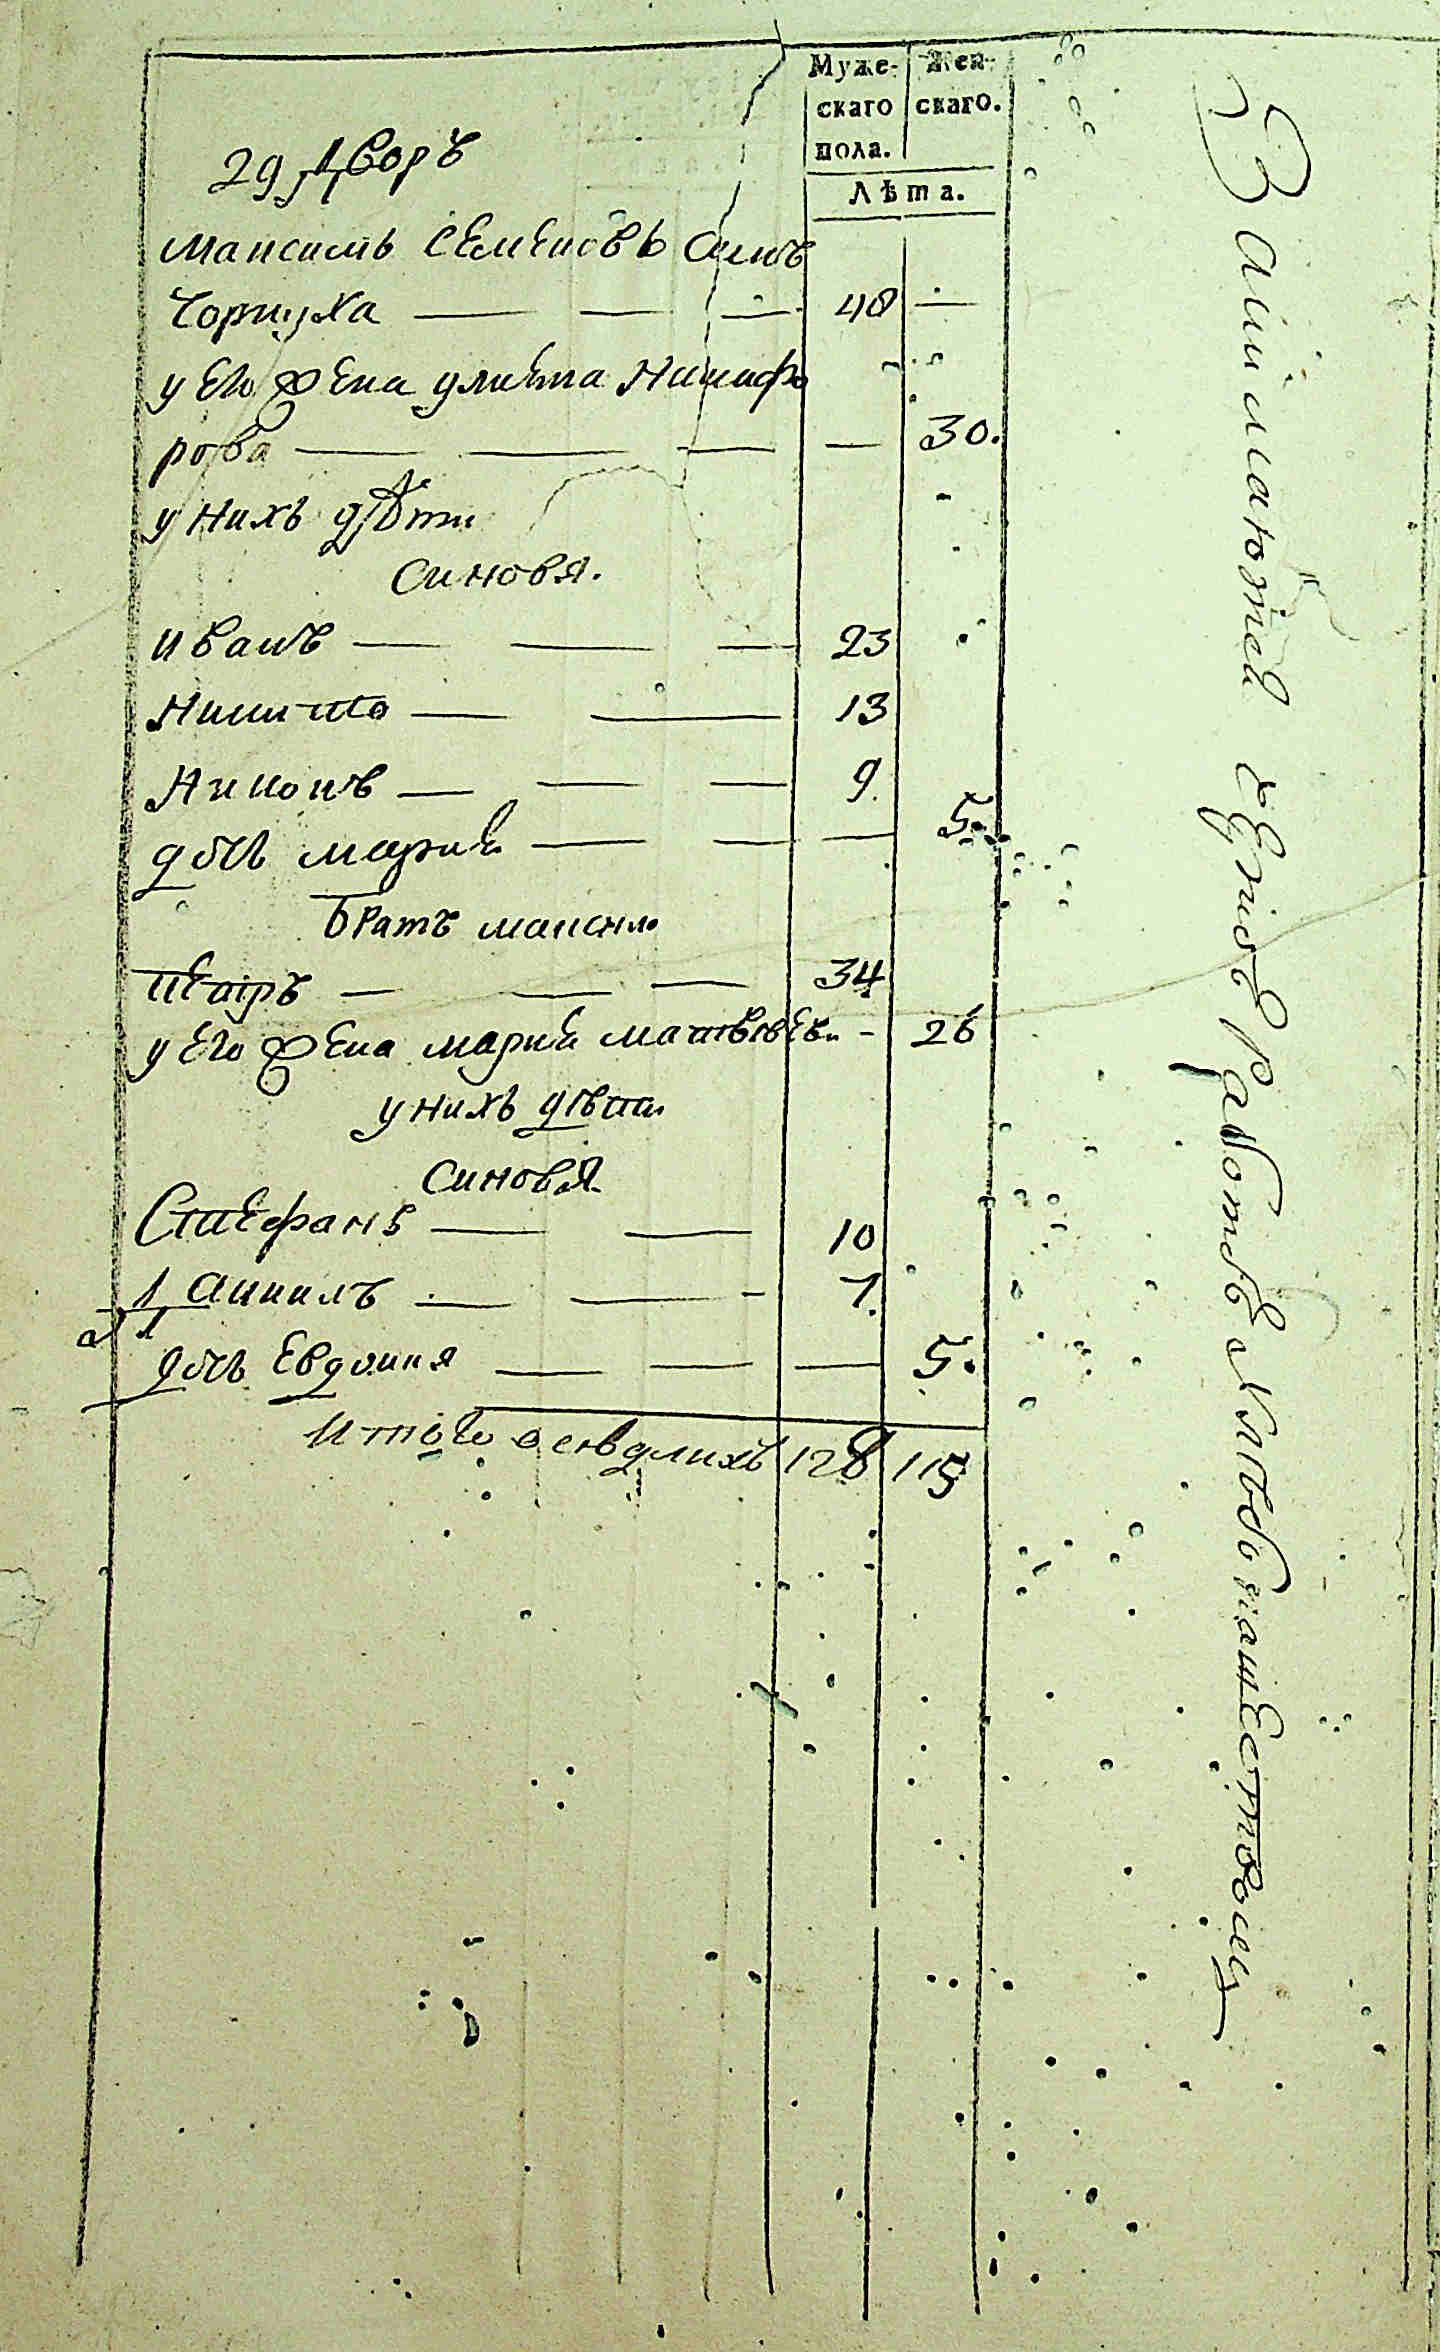 Муже-
скаго
пола.
Жен-
скаго.
Лѣта.
29 Дворъ
Максимъ Семеновъ синъ
Чорнуха — — — 48 —
у его жена улиета Никифо
рова — — — — 30.
у нихъ дѣти
синовя.
иванъ — — — 23
Никито — — 13
Никонъ — — — 9.
дочь марие — — — 5.
братъ максима
петръ — — — 34
у его жена марие матвѣеви - 26
у нихъ дѣти
синовя
Стефанъ — — 10
Даниилъ — — - 7.
дочь Евдокия — — — 5.
Итого осѣдлихъ 128 115
Займаются хлебо работою